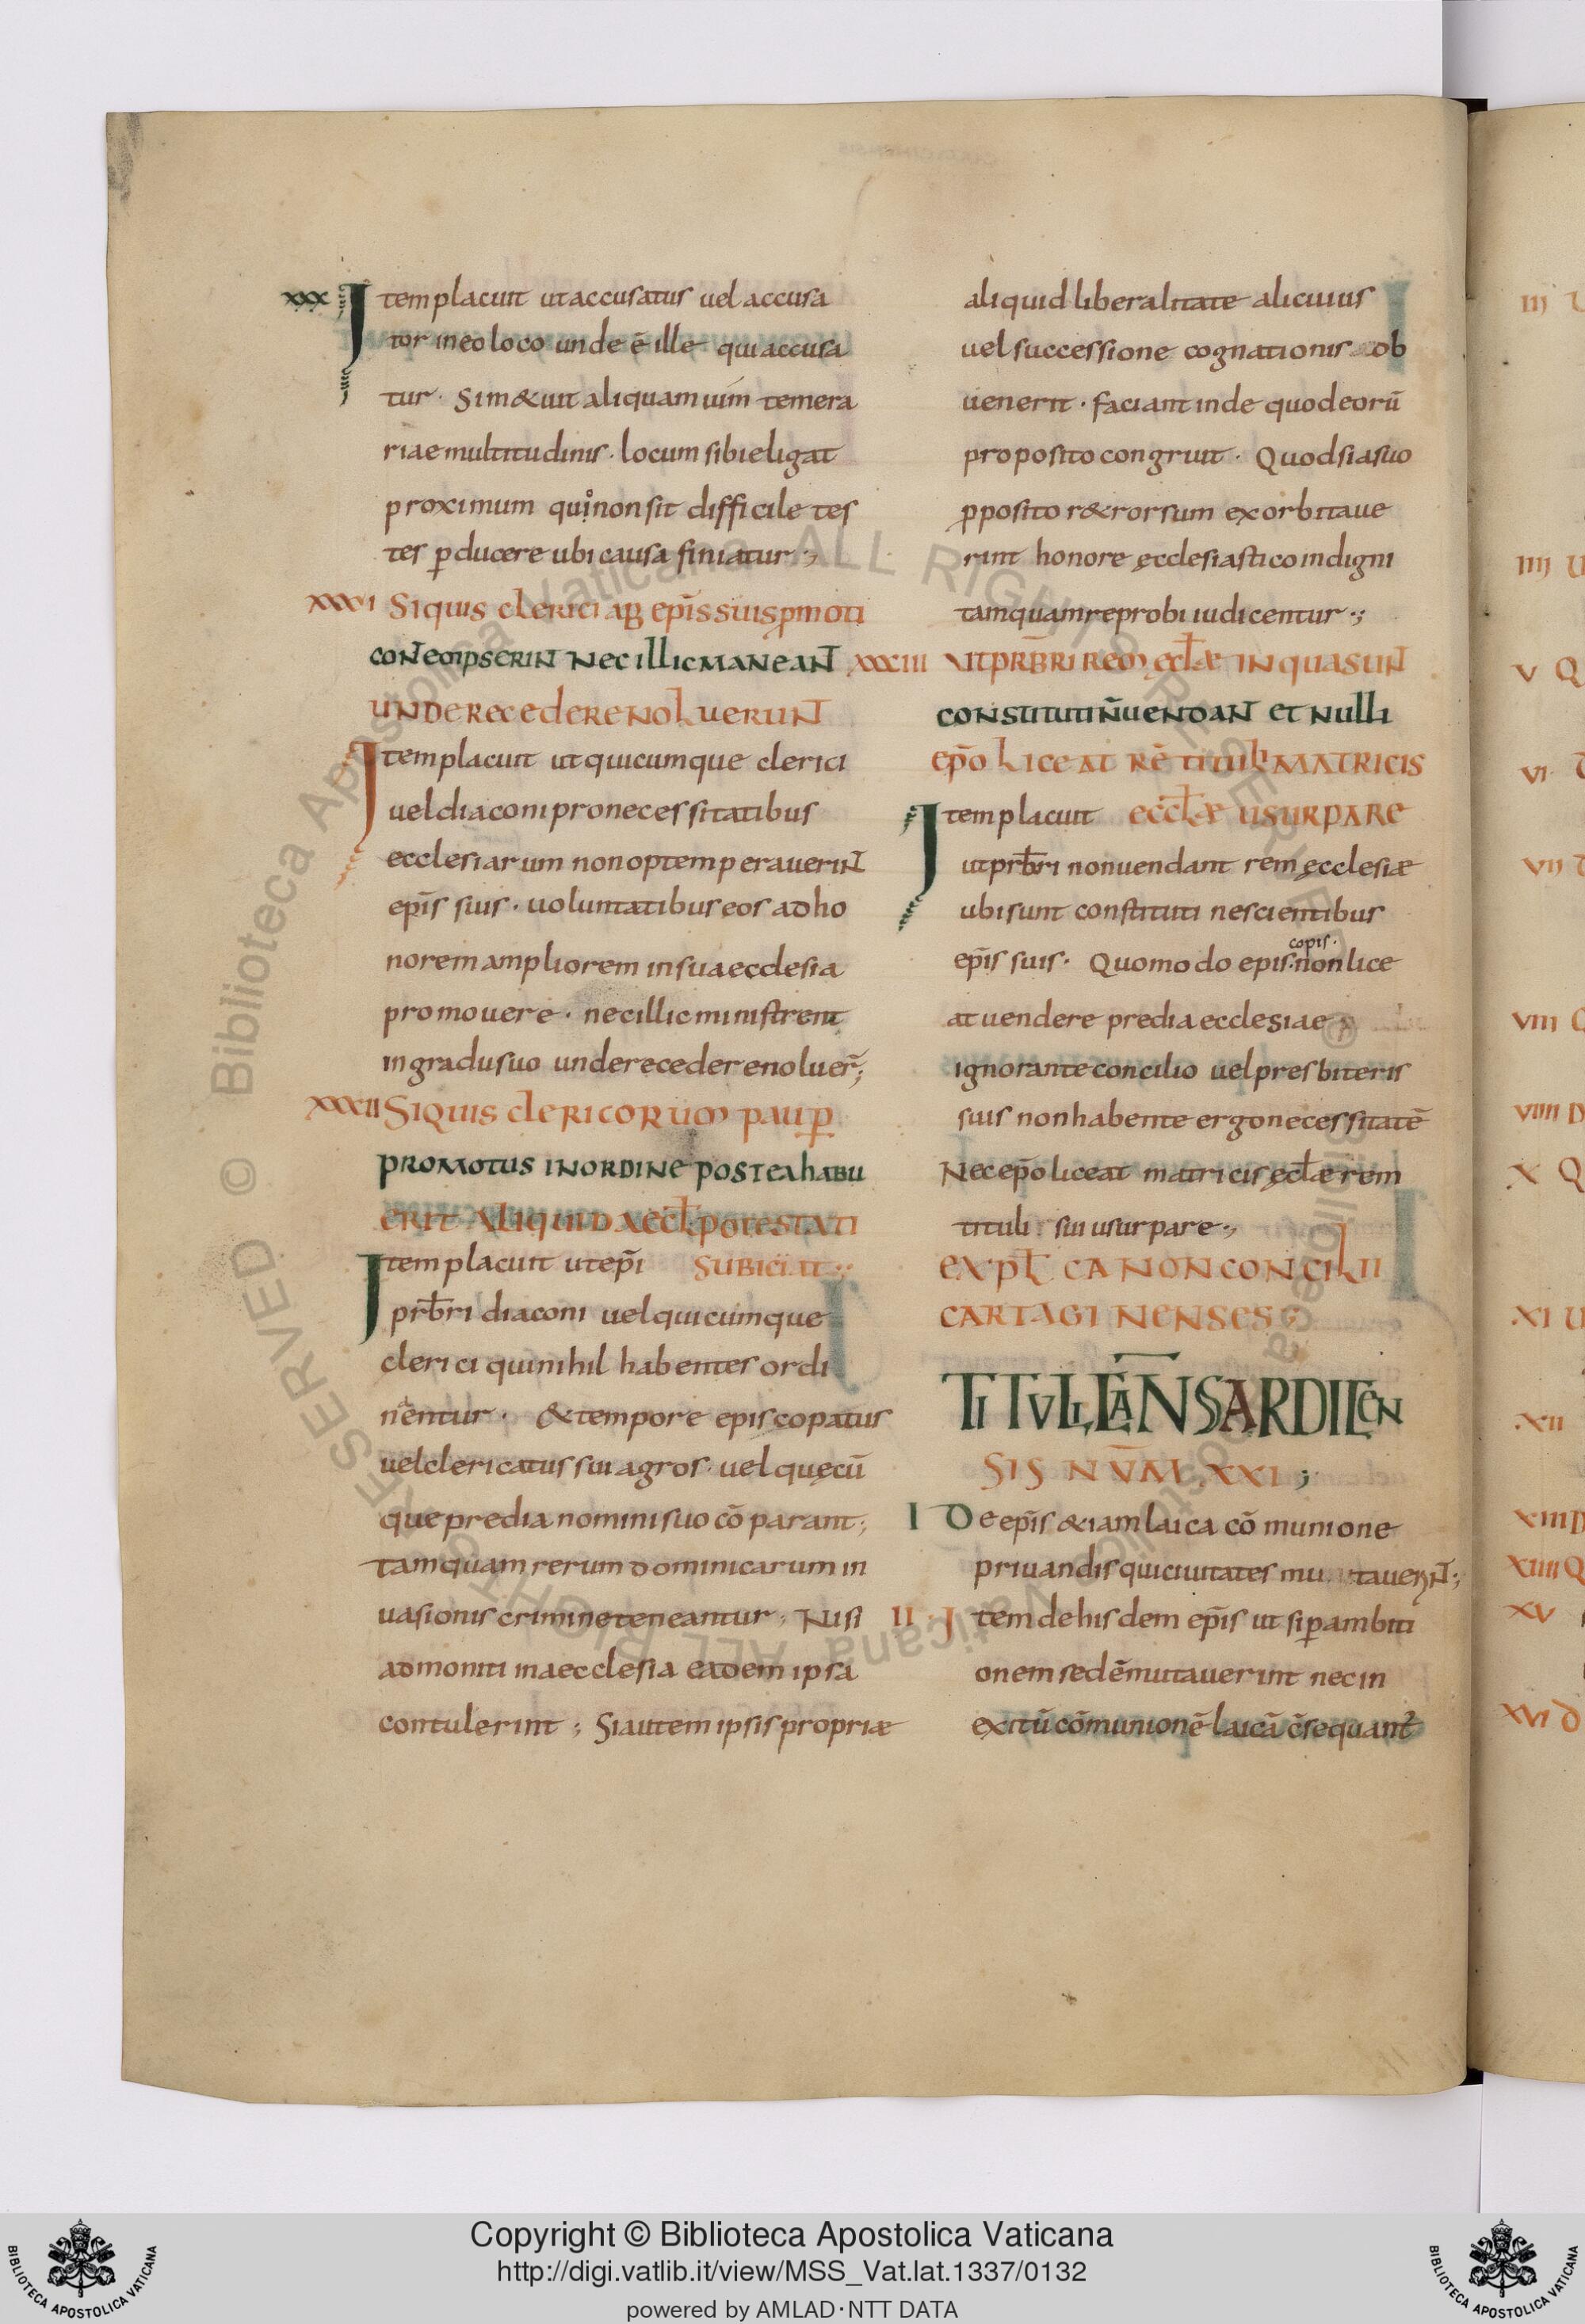 xxx Item placuit ut accusatus uel accusa
tor in eo loco unde ē ille qui accusa
tur · Si m&uit aliquam uim temera
riae multitudinis · locum sibi eligat
proximum quo non sit difficile tes
tes ꝑducere ubi causa finiatur ·;
xxxi Si quis clerici ab ep̄is suis ꝓmoti
contempserint nec illic maneant
unde recedere noluerunt
Item placuit ut quicumque clerici
uel diaconi pro necessitatibus
ecclesiarum non optemperauerint
ep̄is suis · uoluntatibus eos ad ho
norem ampliorem in sua ecclesia
promouere · nec illic ministrent
in gradu suo unde recedere noluer̄;
xxxii Si quis clericorum paup̄
promotus in ordine postea habu
erit aliquid aeccl̄ potestati
Item placuit ut ep̄i subiciat ·;
prb̄ri diaconi uel quicumque
clerici qui nihil habentes ordi
nentur · & tempore episcopatus
uel clericatus sui agros · uel quęcū
que predia nomini suo cō parant ·;
tamquam rerum dominicarum in
uasionis crimine teneantur · Nisi
admoniti in aecclesia eadem ipsa
contulerint ; Si autem ipsis propriæ
aliquid liberalitate alicuius
uel successione cognationis ob
uenerit · faciant inde quod eorū
proposito congruit · Quod si a suo
ꝓposito r&rorsum exorbitaue
rint honore ęcclesiastico indigni
tamquam reprobi iudicentur ·;
xxxiii Ut prb̄ri rem ęccl̄æ in qua sunt
constituti n̄ uendant et nulli
ep̄o liceat rē tituli matricis
Item placuit eccl̄æ usurpare
ut prb̄ri non uendant rem ęcclesiæ
ubi sunt constituti nescientibus
copis ·
ep̄is suis · Quomodo epis · non lice
at uendere predia ecclesiae
ignorante concilio uel presbiteris
suis non habente ergo necessitatē
Nec ep̄o liceat matricis ęccl̄æ rem
tituli sui usurpare ·;
Expl̄ canon concilii
Cartaginenses ;
Tituli can̄ Sardicen
sis nūm . xxi ;
I De ep̄is &iam laica cō munione
priuandis qui ciuitates mu tauerint ·;
II · Item de hisdem ep̄is ut si ꝑ ambiti
onem sedē mutauerint nec in
exitū cōmunionē laicā c̄sequant᷑
iii U
iiii U
v Q
vi
vii
viii Q
viiii D
x Q
xi U
xii
xiii D
xiiii Q
xv
xvi d
Copyright © Biblioteca Apostolica Vaticana
http://digi.vatlib.it/view/MSS_Vat.lat.1337/0132
powered by AMLAD·NTT DATA
BIBLIOTECA APOSTOLICA VATICANA
BIBLIOTECA APOSTOLICA VATICANA
© Biblioteca Apostolica Vaticana ALL RIGHTS RESERVED
© Biblioteca Apostolica Vaticana ALL RIGHTS RESERVED